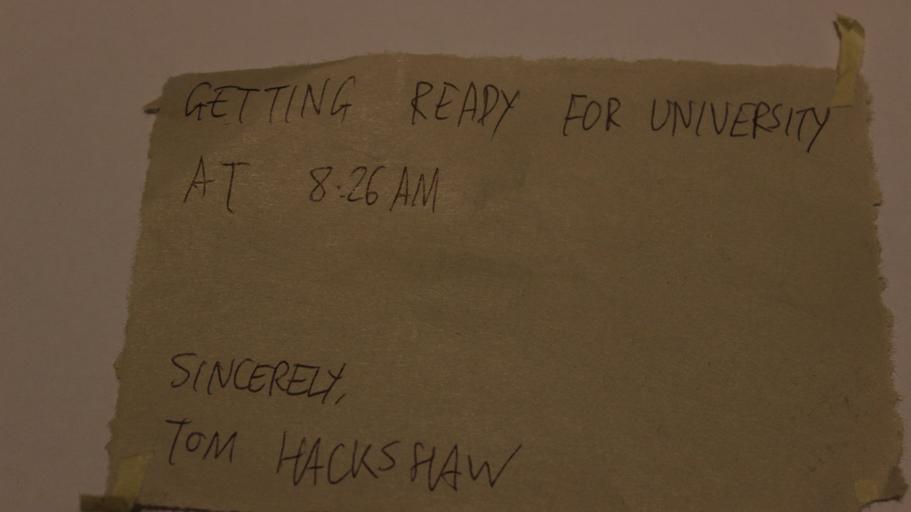 GETTING READY FOR UNIVERSITY
AT 8.26 AM
SINCERELY,
TOM HACKSHAW